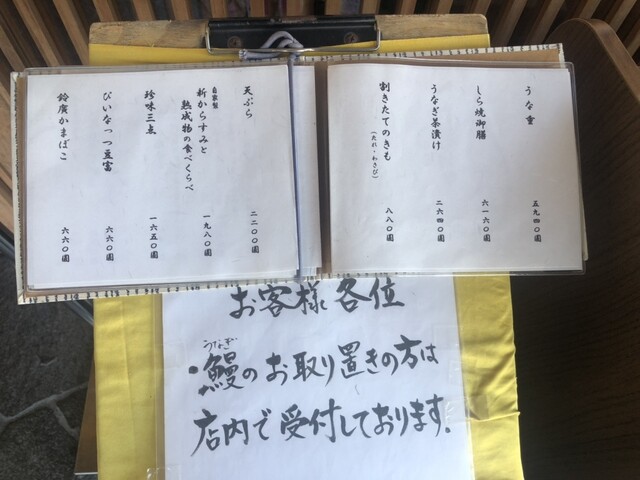 うな重　五九四〇圓
しら焼御膳　六一六〇圓
うなぎ茶漬け　二六四〇圓
割きたてのきも（たれ・わさび）　八八〇圓
天ぷら　二二〇〇圓
自家製
新からすみと
熟成物の食べくらべ　一九八〇圓
珍味三点　一六五〇圓
ぴいなっつ豆富　六六〇圓
鈴廣かまぼこ　六六〇圓
お客様各位
うなぎ
・鰻のお取り置きの方は
店内で受付しております。